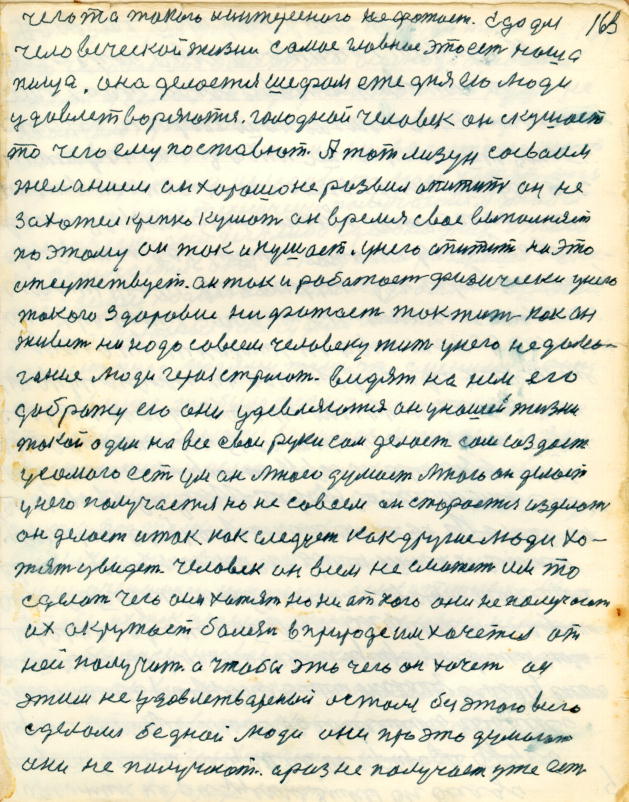 163
чегота такого интересного нефатает. Еда для
человеческой жизни самое главное это ест наша
пища, она делается шефам еже дня его люди
удовлетворяются. голодной человек он скушает
то чего ему поставют. А тот лизун сосваим
желанием он хорошо не развил апитит он не
захотел крепко кушат он время свое выполняет
поэтому он так и кушает. унего апитит на это
отсутствует. он так и работает физически унего
такого здоровие ни фатает так жит как он
живет ни надо совсем человеку жит унего недамо-
гание люди герая стригат. видят на нем его
доброту его они удевляются он унашей жизни
такой один на все свои руки сам делает сам создает
усамого ест ум он много думает много он делает
унего получается но не совсем он старается изделат
он делает итак как следует как другие люди хо-
тят увидет. человек он всем не сможет им то
сделат чего они хатят но ни ат кого они не получают
их акружает балезн вприроде им хочется от
ней получит а чтобы это чего он хочет он
этим не удовлетвареный остался быэтого всего
сделали бедной люди они про это думают
они не получают. а раз не получает уже ест